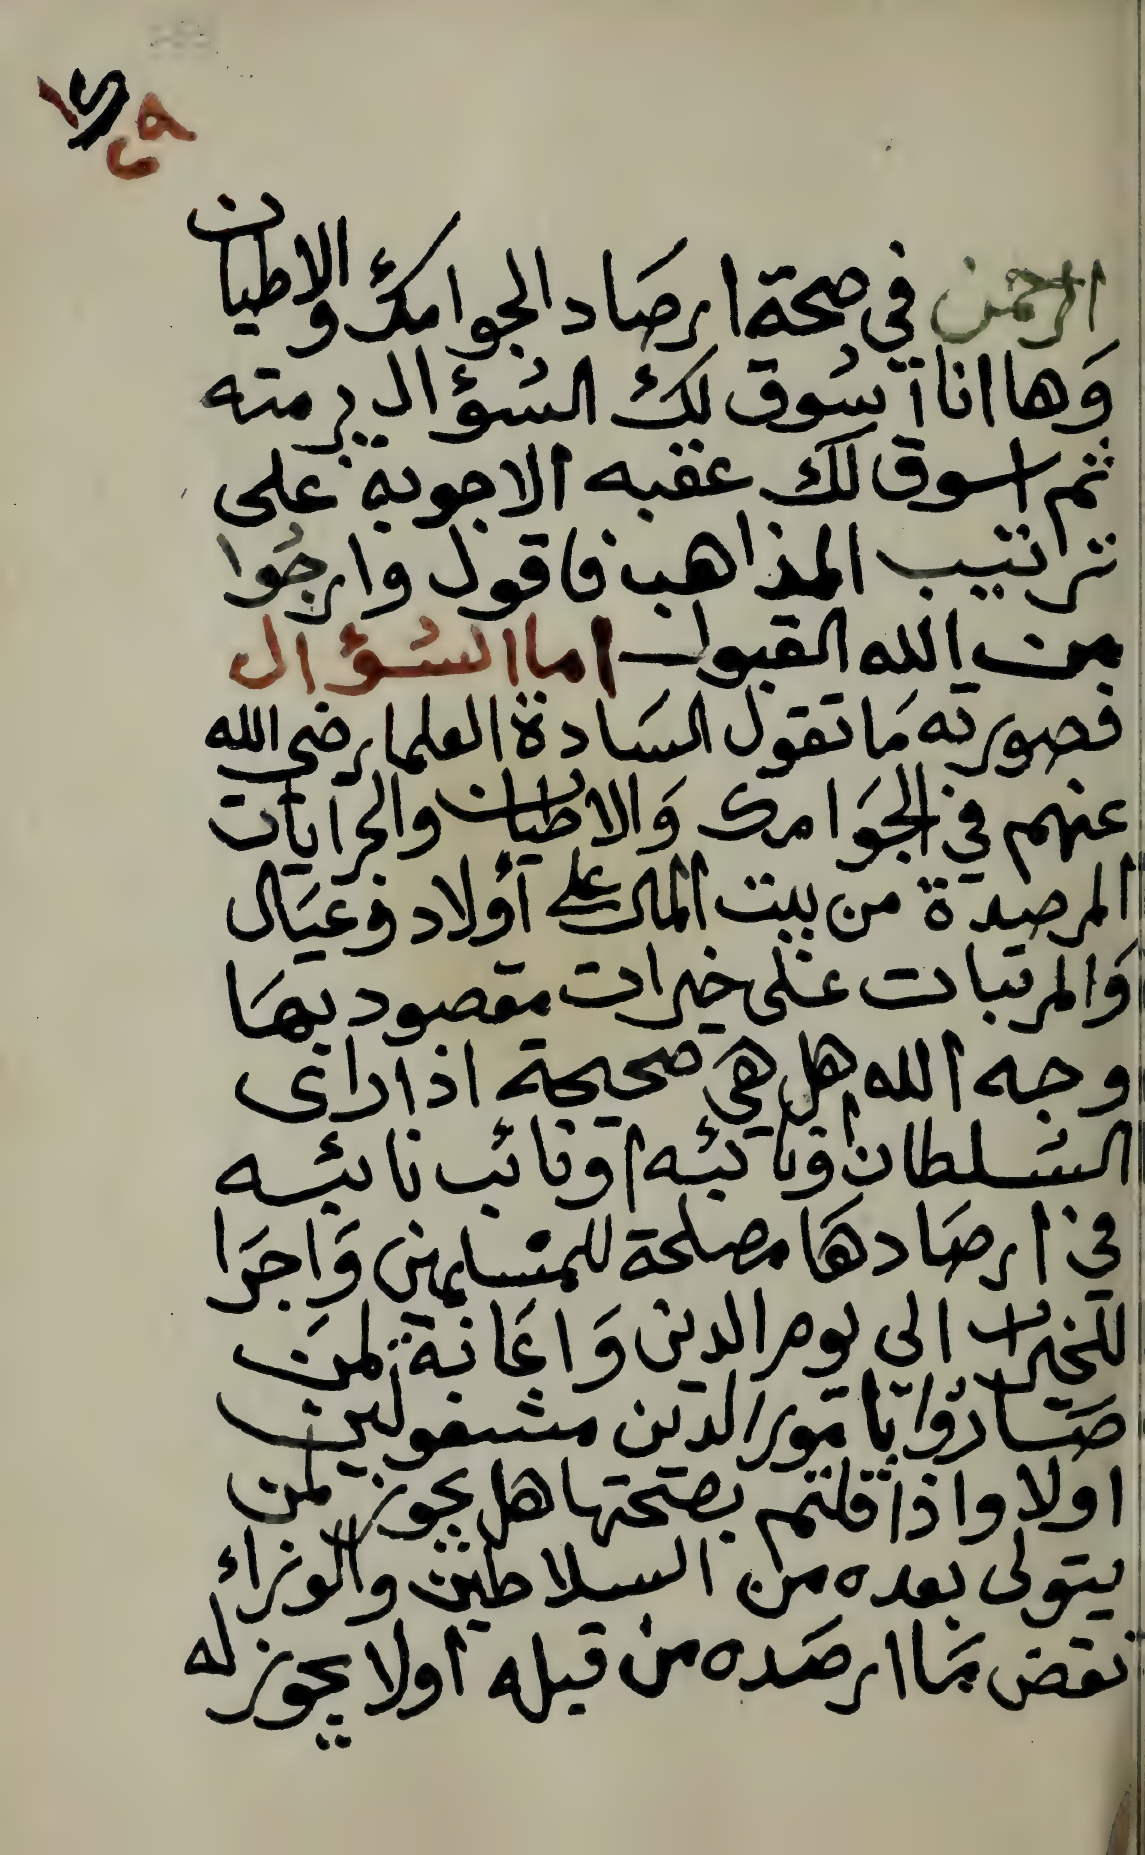 الرحمن في صحة ارصاد الجوامك والاطيان
وها انا اسوق لك السؤال برمته
ثم اسوق لك عقبه الاجوبة على
ترتيب المذاهب فاقول وارجوا
من الله القبول اما السؤال
فصورته ما تقول السادة العلما رضي الله
عنهم في الجوامك والاطيان والجرايات
المرصدة من بيت المال على أولاد وعيال
والمرتبات على خيرات مقصود بها
وجه الله هل هي صحيحة اذا راى
السلطان او نائبه او نائب نائبه
في ارصادها مصلحة للمسلمين واجرا
للخيرات الى يوم الدين واعانة لمن
صاروا بامور الدين مشغولين
اولا واذا قلتم بصحتها هل يجوز لمن
يتولى بعده من السلاطين والوزراء
نقض ما ارصده من قبله اولا يجوز له